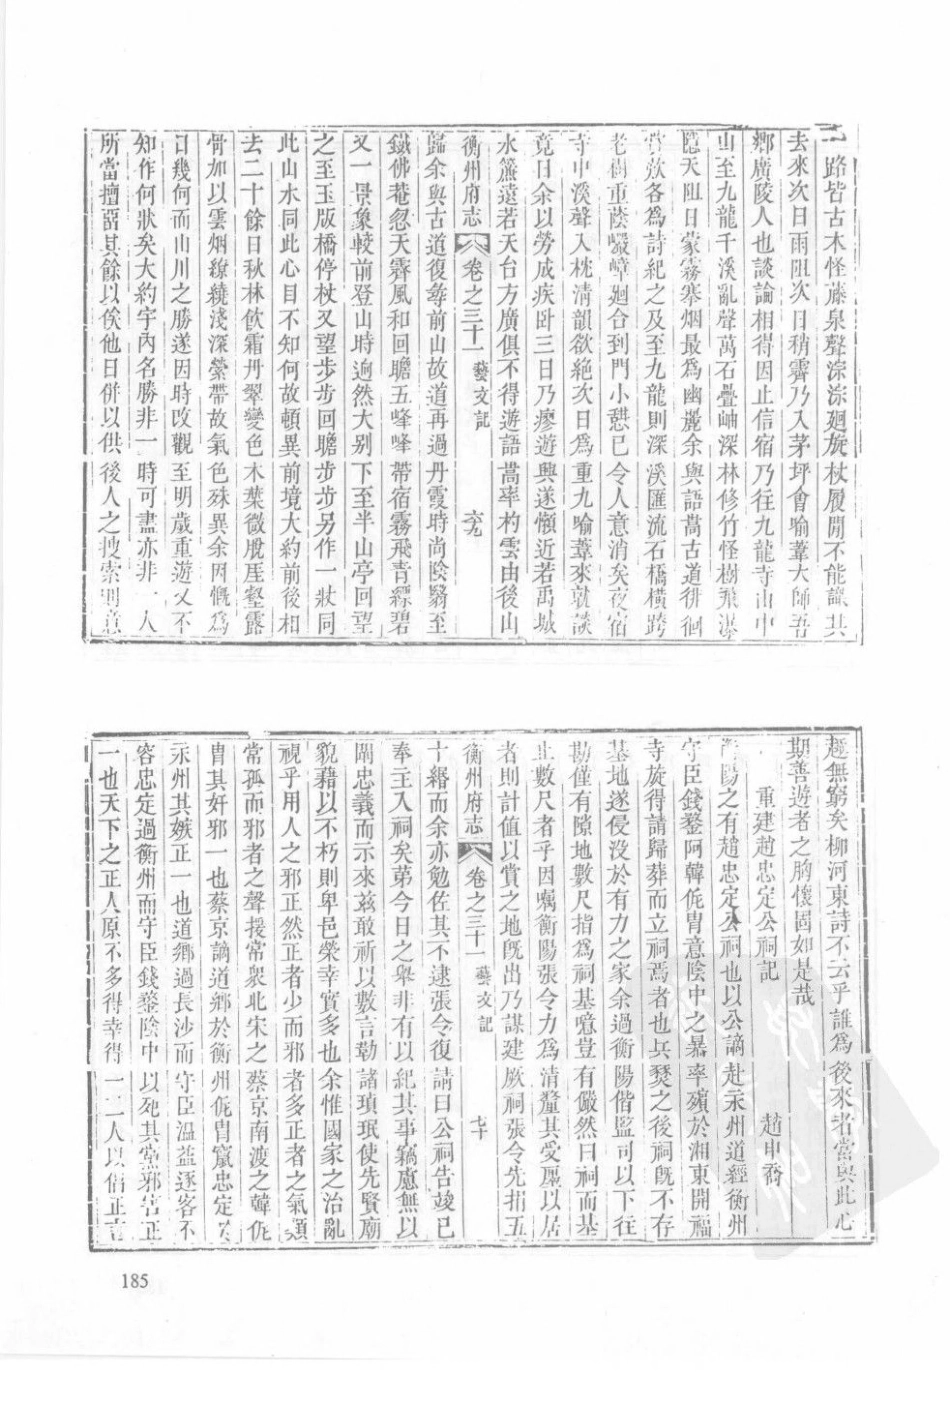 一路皆古木怪藤泉聲淙淙廻旋杖履閒不能讓其
去來次日雨阻次日稍霽乃入茅坪會喻葦大師吾
鄉廣陵人也談論相得因止信宿乃往九龍寺山中
山至九龍千溪亂聲萬石疊岫深林修竹怪樹飛瀑
隱天阻日蒙霧寒烟最爲幽麗余與語嵩古道徘徊
賞歎各爲詩紀之及至九龍則深溪匯流石橋橫跨
老樹重蔭巖嶂廻合到門小憇已令人意消矣夜宿
寺中溪聲入枕清韻欲絶次日爲重九喻葦來就談
竟日余以勞成疾卧三日乃瘳遊興遂懶近若禹城
水簾遠若天台方廣俱不得遊語嵩率杓雲由後山
衡州府志 卷之三十一 藝文記 六九
歸余與古道復尋前山故道再過丹霞時尚陰翳至
鐵佛菴忽天霽風和回瞻五峰峰帶宿霧飛青繆碧
又一景象較前登山時逈然大别下至半山亭回望
之至玉版橋停杖又望步步回瞻步步另作一狀同
此山水同此心目不知何故頓異前境大約前後相
去二十餘日秋林飮霜丹翠變色木葉微脫厓壑露
骨加以雲烟繚繞淺深縈帶故氣色殊異余因慨爲
日幾何而山川之勝遂因時改觀至明歲重遊又不
知作何狀矣大約宇內名勝非一時可盡亦非一人
所當擅畱其餘以俟他日併以供後人之搜索則意
趣無窮矣柳河東詩不云乎誰爲後來者當與此心
期善遊者之胸懷固如是哉
重建趙忠定公祠記 趙申喬
衡陽之有趙忠定公祠也以公謫赴永州道經衡州
守臣錢鍪阿韓侂胄意陰中之暴卒殯於湘東開福
寺旋得請歸葬而立祠焉者也兵燹之後祠旣不存
基地遂侵沒於有力之家余過衡陽偕監司以下往
勘僅有隙地數尺指爲祠基噫豈有儼然曰祠而基
止數尺者乎因嘱衡陽張令力爲清釐其受廛以居
者則計值以賞之地旣出乃謀建厥祠張令先捐五
衡州府志 卷之三十一 藝文記 七十
十緡而余亦勉佐其不逮張令復請曰公祠告竣已
奉主入祠矣第今日之舉非有以紀其事竊慮無以
闡忠義而示來兹敢祈以數言勒諸瑣珉使先賢廟
貌藉以不朽則卑邑榮幸實多也余惟國家之治亂
視乎用人之邪正然正者少而邪者多正者之氣頭
常孤而邪者之聲援常衆北宋之蔡京南渡之韓侂
胄其奸邪一也蔡京謫道鄉於衡州侂胄竄忠定於
永州其嫉正一也道鄉過長沙而守臣溫益逐客不
容忠定過衡州而守臣錢鍪陰中以死其黨邪害正
一也天下之正人原不多得幸得一二人以倡正言
185